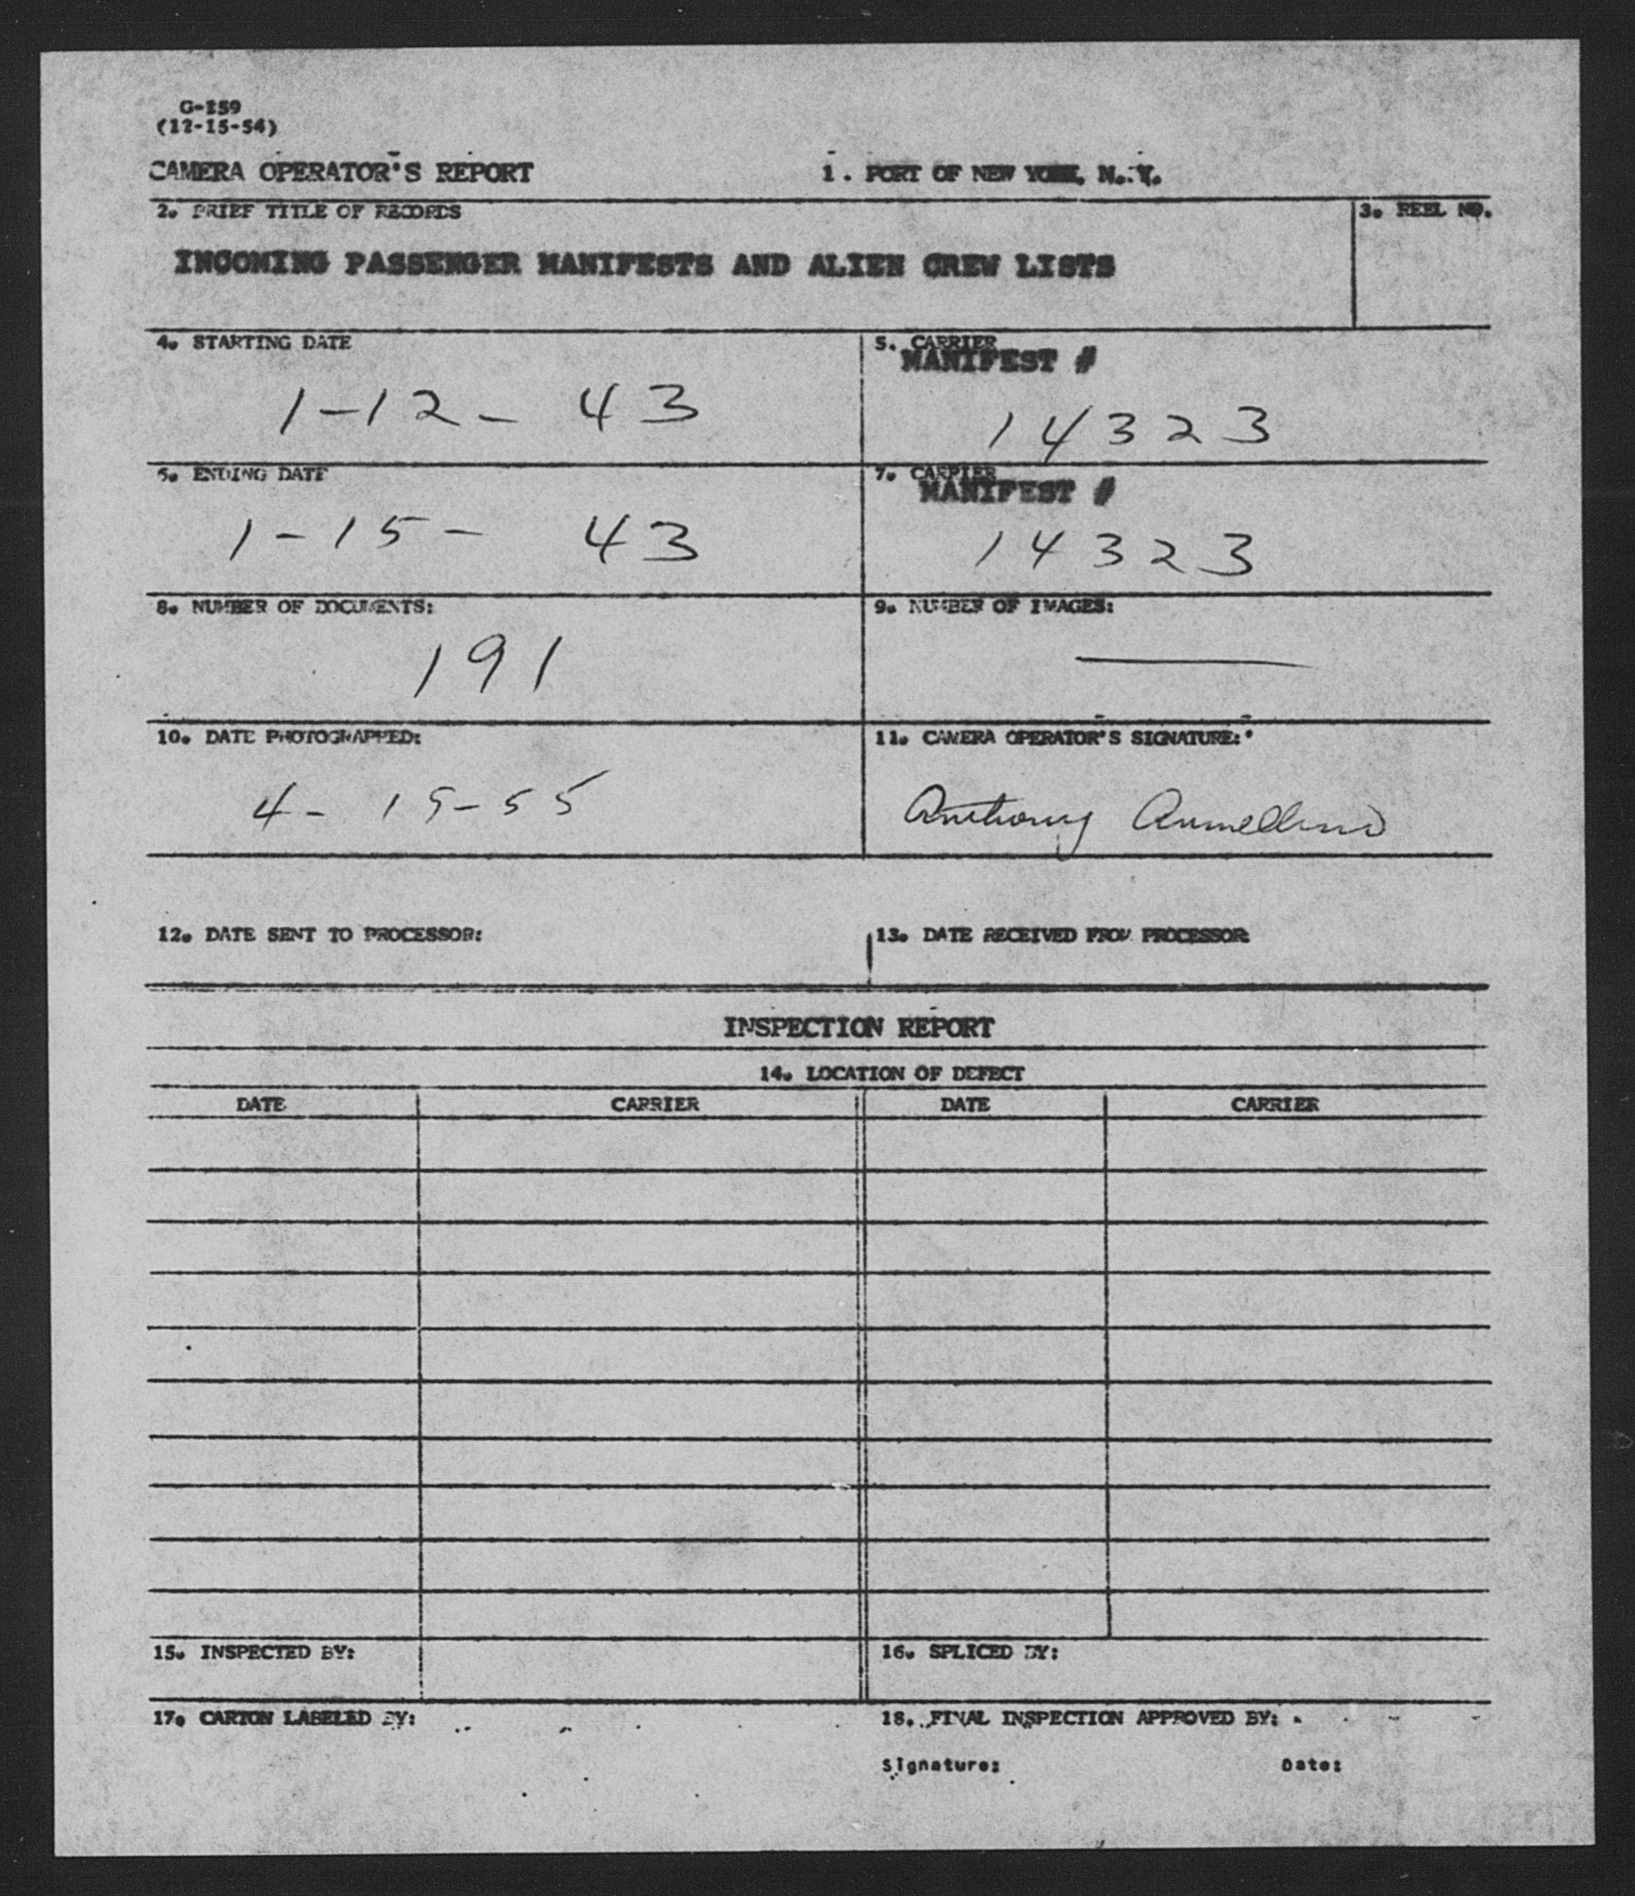 G-159
(12-15-54)
CAMERA OPERATOR'S REPORT
1. PORT OF NEW YORK, N. Y.
2. BRIEF TITLE OF RECORDS
3. REEL NO.
INCOMING PASSENGER MANIFESTS AND ALIEN CREW LISTS
4. STARTING DATE
5. CARRIER
MANIFEST #
1-12-43
14323
5. ENDING DATE
7. CARRIER
MANIFEST #
1-15-43
14323
8. NUMBER OF DOCUMENTS:
9. NUMBER OF IMAGES:
191
10. DATE PHOTOGRAPHED:
11. CAMERA OPERATOR'S SIGNATURE:
4-15-55
Anthony
12. DATE SENT TO PROCESSOR:
13. DATE RECEIVED FROM PROCESSOR
INSPECTION REPORT
14. LOCATION OF DEFECT
DATE CARRIER DATE CARRIER
15. INSPECTED BY:
16. SPLICED BY:
17. CARTON LABELED BY:
18. FINAL INSPECTION APPROVED BY:
Signature: Date: